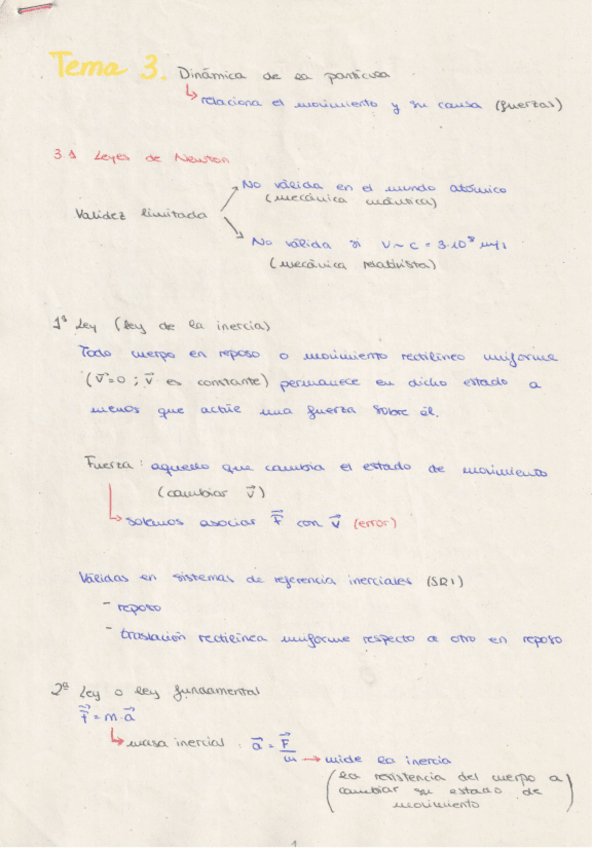 Tema 3. Dinámica de la partícula
↳ relaciona el movimiento y su causa (fuerzas)
3.1 Leyes de Newton
Validez limitada
No válida en el mundo atómico
(mecánica cuántica)
No válida si v ~ c = 3·10⁸ m/s
(mecánica relativista)
1ª Ley (Ley de la inercia)
Todo cuerpo en reposo o movimiento rectilíneo uniforme
(v⃗=0 ; v⃗ es constante) permanece en dicho estado a
menos que actúe una fuerza sobre él.
Fuerza: aquello que cambia el estado de movimiento
(cambiar v⃗)
↳ solemos asociar F⃗ con v⃗ (error)
Válidas en sistemas de referencia inerciales (SRI)
- reposo
- traslación rectilínea uniforme respecto a otro en reposo
2ª Ley o ley fundamental
F⃗ = m·a⃗
↳ masa inercial : a⃗ = F⃗/m → mide la inercia
(la resistencia del cuerpo a
cambiar su estado de
movimiento)
1